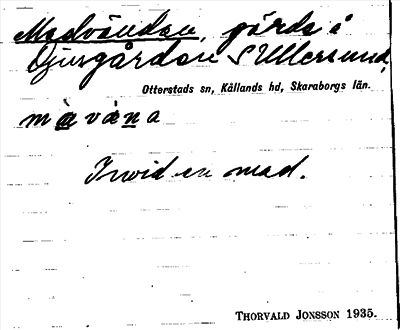 Madvändan, gärds i
Djurgården S Ullersund,
Otterstads sn, Kållands hd, Skaraborgs län.
màvæna
Invid en mad.
THORVALD JONSSON 1935.